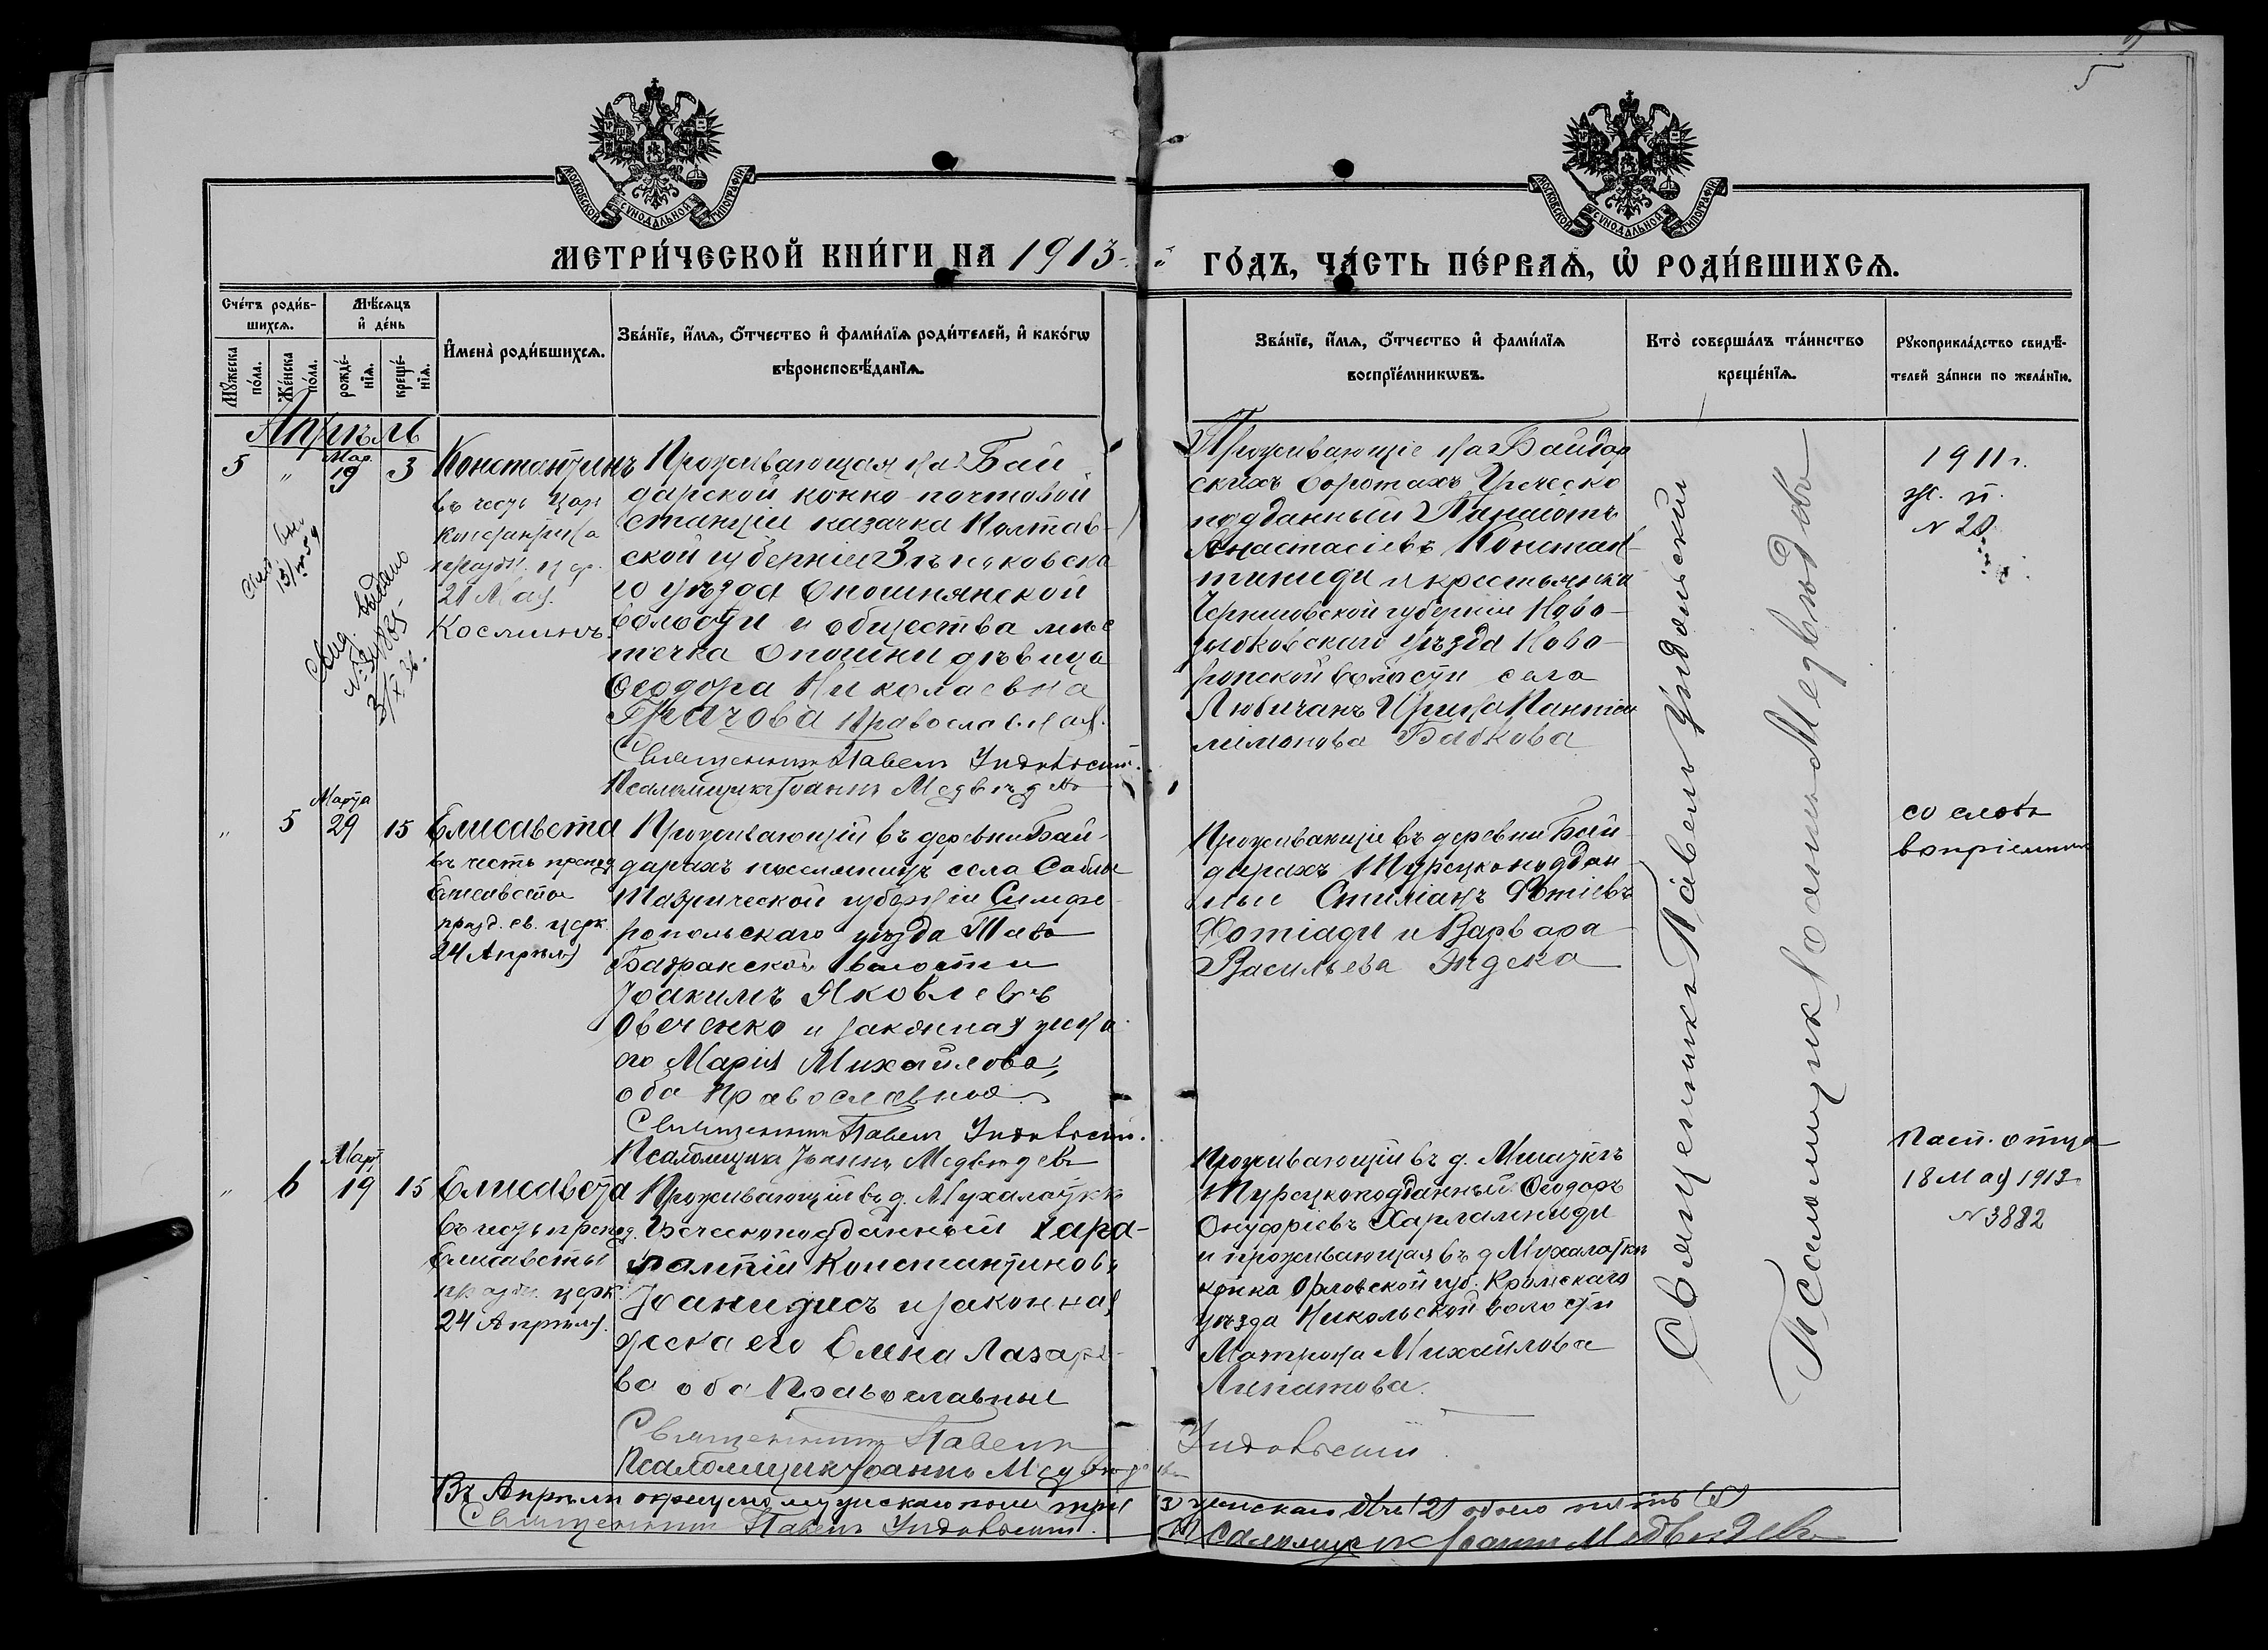 5
МОСКОВСКОЙ СѴНОДАЛЬНОЙ ТИПОГРАФІИ
МОСКОВСКОЙ СѴНОДАЛЬНОЙ ТИПОГРАФІИ
МЕТРИ́ЧЕСКОЙ КНИ́ГИ НА 1913-й ГО́ДЪ, ЧА́СТЬ ПЕ́РВАѦ, Ѡ РОДИ́ВШИХСѦ.
Сче́тъ роди́в-
шихсѧ.
Мꙋ́жеска по́ла.
Же́нска по́ла.
Мѣ́сѧцъ
и҆ де́нь
рожде́-
нїѧ.
креще́-
нїѧ.
И҆мена̀ роди́вшихсѧ.
Зва́нїе, и҆́мѧ, ѻ҆́тчество и҆ фами́лїѧ роди́телей, и҆ како́гѡ
вѣроисповѣ́данїѧ.
Зва́нїе, и҆́мѧ, ѻ҆́тчество и҆ фами́лїѧ
воспрїе́мникѡвъ.
Кто̀ соверша́лъ та́инство
креще́нїѧ.
Рꙋкоприкла́дство свидѣ́-
телей за́писи по жела́нїю.
Апрѣль
5 " Мар. 19 3
Константинъ
въ честь царя
Константина
праздн. церк.
21 Мая.
Косминъ.
Свид. выдано
Проживающая на Бай
дарской конно-почтовой
станціи казачка Полтав-
ской губерніи Зѣньковска
го уѣзда Опошнянской
волости и общества мѣс
течка Опошни дѣвица
Ѳеодора Николаевна
Грачова Православная.
Священникъ Павелъ Ундольскій.
Псаломщикъ Іоаннъ Медвѣдевъ
Проживающіе на Байдар
скихъ воротахъ Греческо
подданный Панаіотъ
Анастасіевъ Констан-
тиниди и крестьянка
Черниговской губерніи Ново-
зыбковскаго уѣзда Ново-
ропской волости села
Любичанъ Ирина Пантеле
лимонова Бабкова
1911 г.
N 20
" 5 Марта 29 15
Елисавета
въ честь препод
Елисаветы
празд. св. церк.
24 Апрѣля
Проживающій въ деревни Бай-
дарахъ поселянинъ села Саблы
Таврической губерніи Симфе
ропольскаго уѣзда
волости
Іоакимъ Яковлевъ
Овеченко и законная жена
его Марія Михайлова,
оба Православные.
Священникъ Павелъ Ундольскій.
Псаломщикъ Іоаннъ Медвѣдевъ
Проживающіе въ деревни Бай-
дарахъ Турецкоподдан
ные Стиліанъ Фотіевъ
Фотіади и Варвара
Васильева
со словъ
вопріемник
" 6 Март 19 15
Елисавета
въ честь препод.
Елисаветы
праздн. церк.
24 Апрѣля.
Проживающій въ д. Мухалаткѣ
Греческоподданный Хара-
лампій Константиновъ
Іоанидисъ и законная
жена его Елена Лазаре-
ва оба Православные
Священникъ Павелъ Ундольскій.
Псаломщикъ Іоаннъ Медвѣдевъ
Проживающій въ д.
Турецкоподданный Ѳеодоръ
Онуфріевъ Харлампиди
и проживающая въ д. Мухалаткѣ
Орловской губ. Кромскаго
уѣзда Никольской волости
Матрона Михайлова
Липатова.
Пасп. отца
18 Мая 1913
N 3882
Священникъ Павелъ Ундольскій
Псаломщикъ Іоаннъ Медвѣдевъ
Въ Апрѣлѣ окрещено мужскаго пола три (3) женскаго двѣ (2) обоего пять (5)
Священникъ Павелъ Ундольскій.
Псаломщикъ Іоаннъ Медвѣдевъ